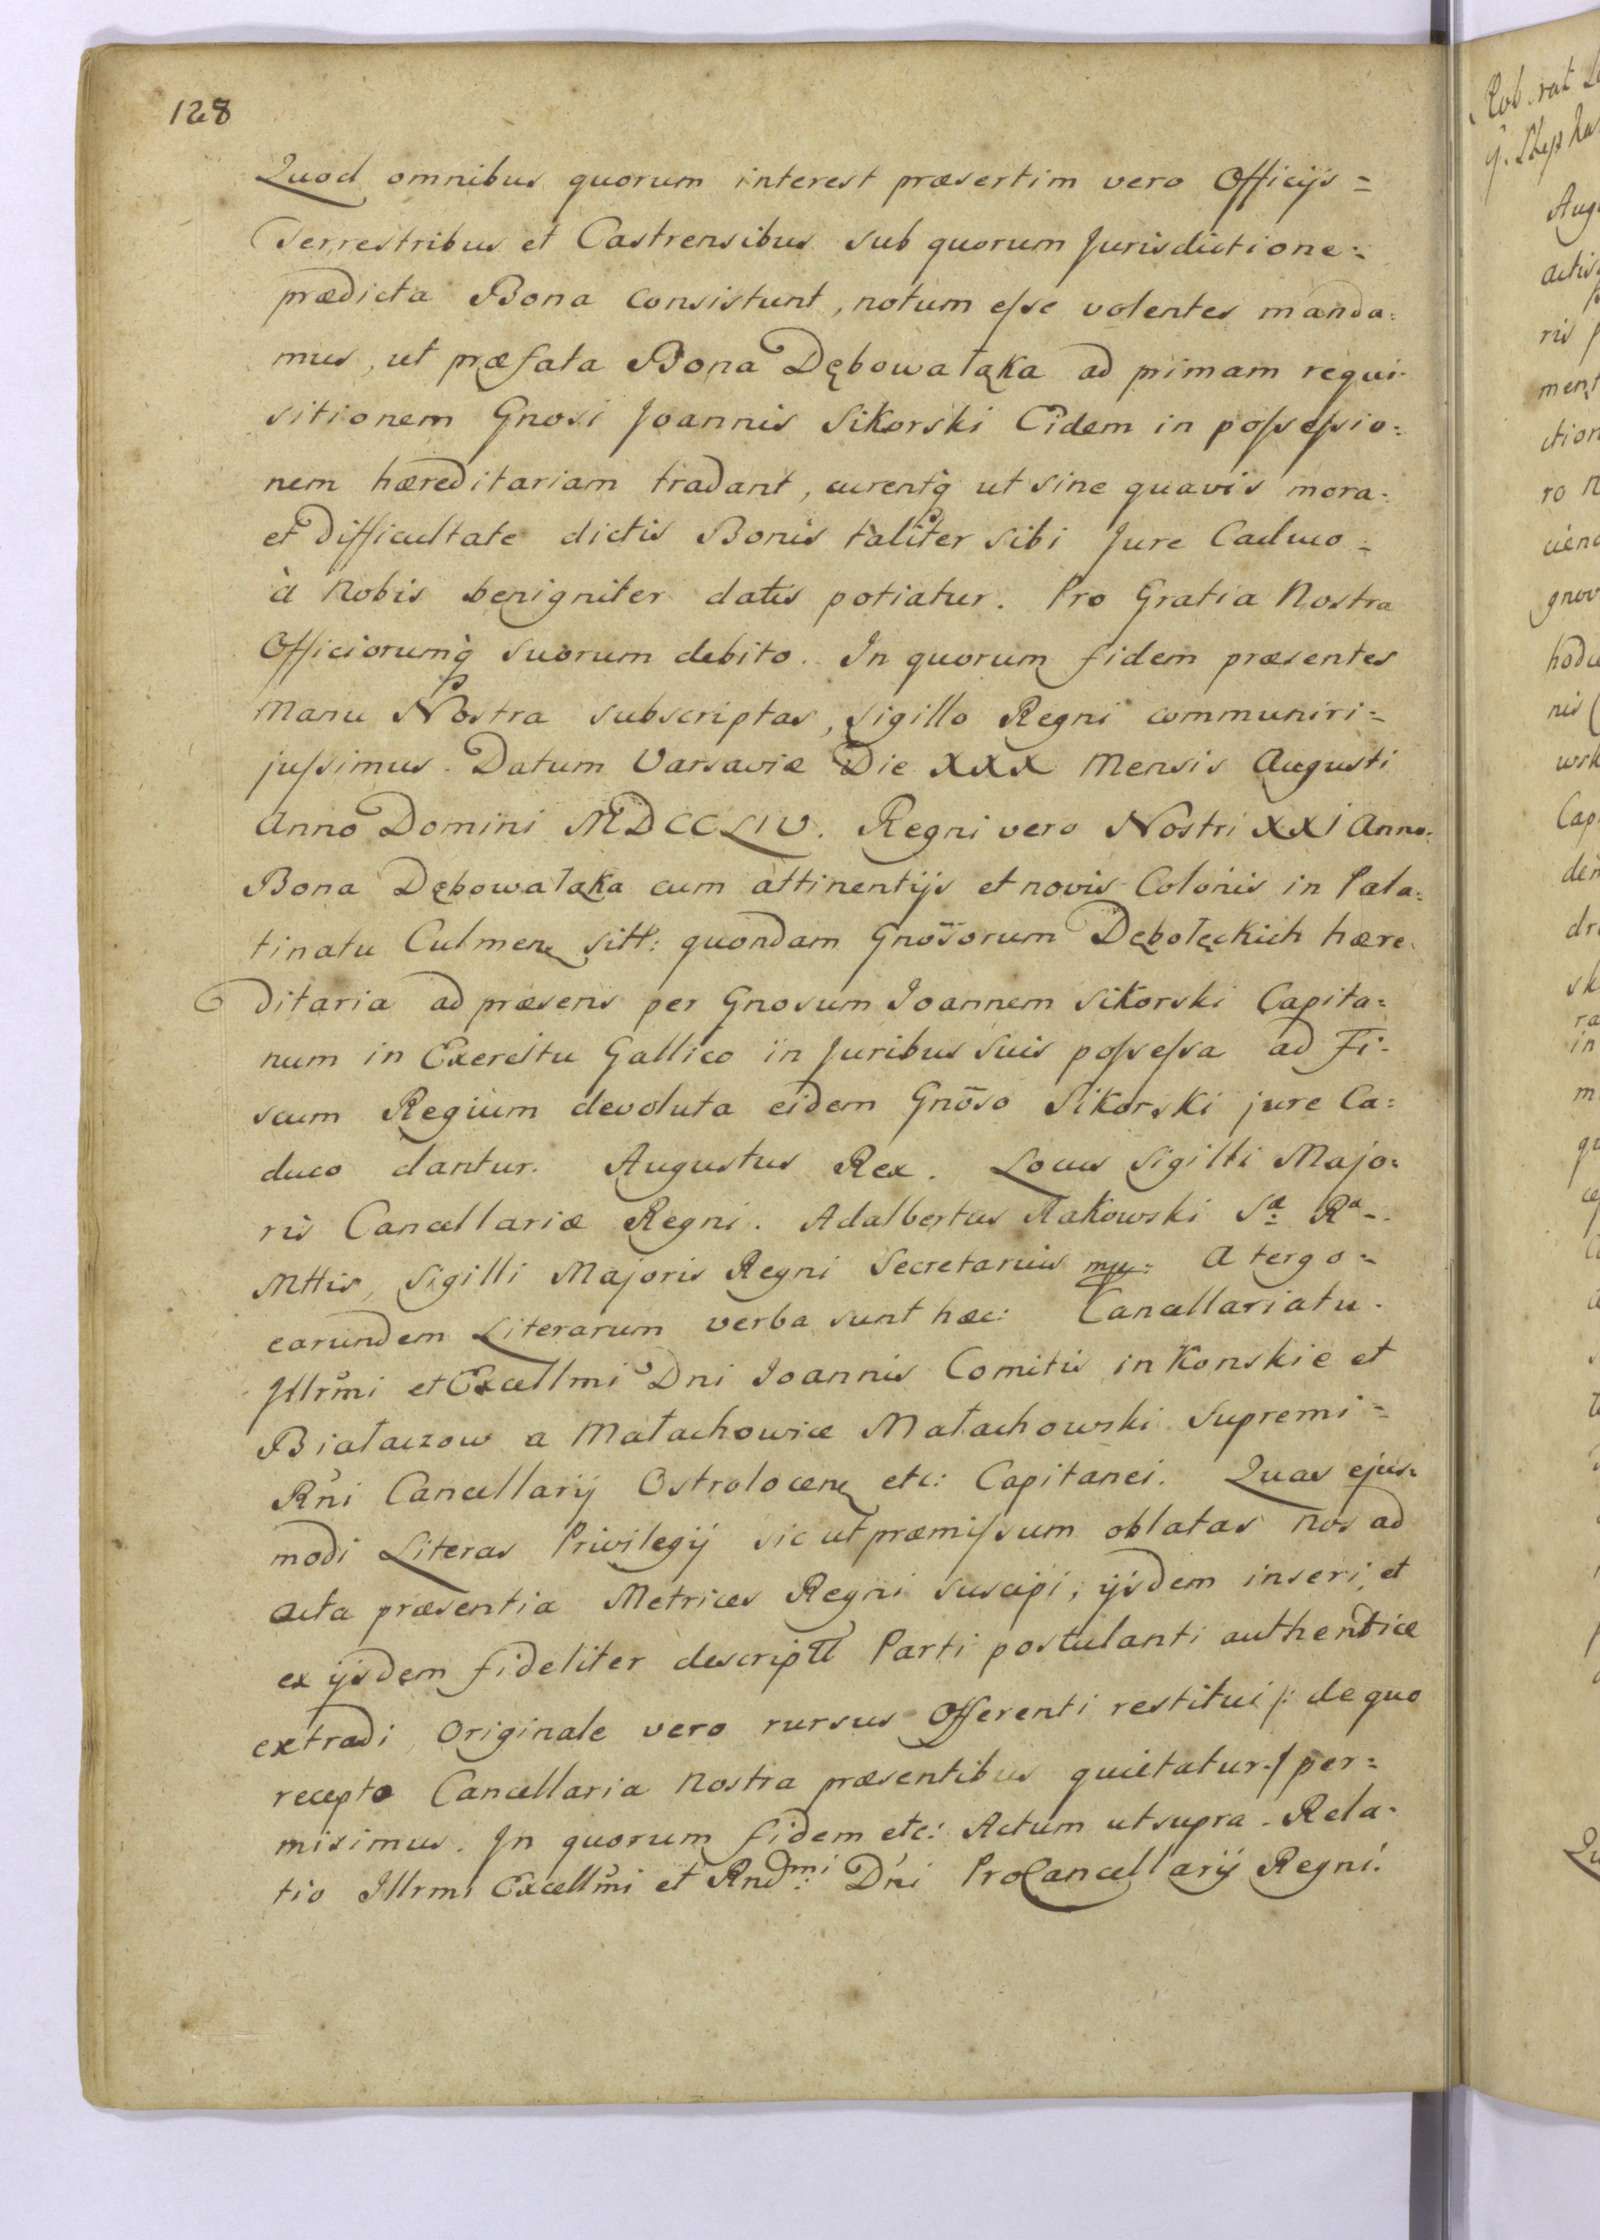 128
Quod omnibus quorum interest præsertim vero Officijs =
Terrestribus et Castrensibus sub quorum Jurisdictione =
prædicta Bona consistunt, notum eſse volentes manda=
mus, ut præfata Bona Dębowałąka ad primam requi-
sitionem Gnosi Joannis Sikorski Eidem in poſseſsio=
nem hæreditariam tradant, curentq̀ ut sine quavis mora=
et Difficultate dictis Bonis taliter sibi Jure Caduco =
à Nobis benigniter datis potiatur. Pro Gratia Nostra
Officiorumq̀ suorum debito. In quorum fidem præsentes
Manu Nostra subscriptas, Sigillo Regni communiri =
juſsimus. Datum Varsaviæ Die XXX Mensis Augusti
Anno Domini MDCCLIV. Regni vero Nostri XXI Anno.
Bona Dębowałąka cum attinentijs et novis Colonis in Pala=
tinatu Culmen sitt: quondam Gnōsorum Dębołęckich hære
ditaria ad præsens per Gnosum Joannem Sikorski Capita=
num in Exercitu Gallico in Juribus suis poſseſsa ad Fi-
scum Regium devoluta eidem Gnōso Sikorski jure Ca=
duco dantur. Augustus Rex. Locus Sigilli Majo=
ris Cancellariæ Regni. Adalbertus Rakowski Sᵃ Rᵃ
Mttis, Sigilli Majoris Regni Secretarius mp: A tergo =
earundem Literarum verba sunt hæc: Cancellariatu
Jllrmi et Excellmi Dni Joannis Comitis in Konskie et
Białaczow a Małachowice Małachowski Supremi =
Rni Cancellarij Ostrolocen etc: Capitanei. Quas ejus=
modi Literas Privilegij sic ut præmiſsum oblatas Nos ad
acta præsentia Metrices Regni suscipi, ijsdem inseri, et
ex ijsdem fideliter descriptt Parti postulanti authenticæ
extradi, Originale vero rursus Offerenti restitui /: de quo
recepto Cancellaria Nostra præsentibus quietatur :/ per=
misimus. Jn quorum fidem etc: Actum ut supra. Rela=
tio Jllrmi Excellmi et Rndmi Dni ProCancellarij Regni.